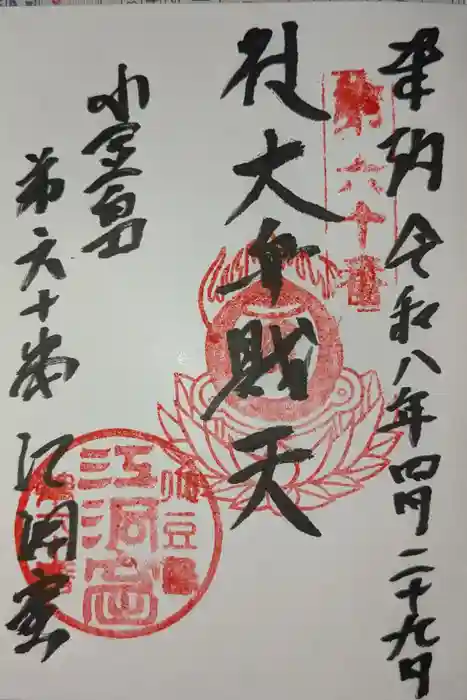 奉納 令和八年四月二十九日
第六十番
大弁財天
小豆島
第六十番 江洞窟
江洞窟